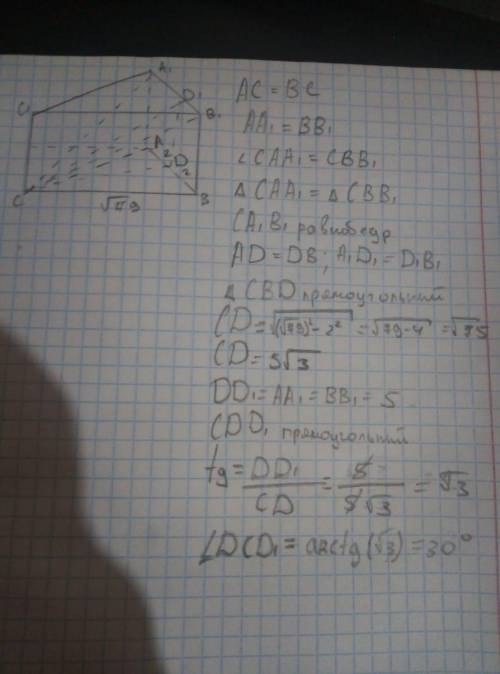 A₁
D₁
C₁
B₁
A
2
D
2
C
B
√79
AC = BC
AA₁ = BB₁
∠CAA₁ = CBB₁
△CAA₁ = △CBB₁
CA₁B₁ равнобедр
AD = DB; A₁D₁ = D₁B₁
△CBD прямоугольний
CD = √((√79)² - 2²) = √79-4 = √75
CD = 5√3
DD₁ = AA₁ = BB₁ = 5
CDD₁ прямоугольний
tg = DD₁/CD = 5/5√3 = √3
∠DCD₁ = arctg(√3) = 30°